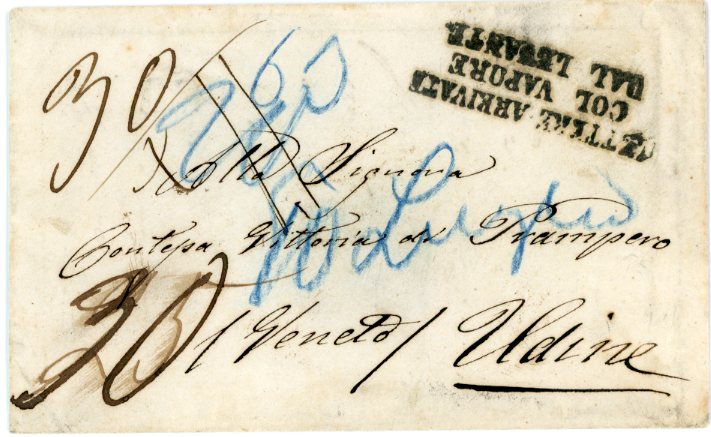 LETTERE ARRIVATE
COL VAPORE
DAL LEVANTE
30
Alla Signora
Contessa Vittoria de Prampero
/ Veneto / Udine
10 Luglio